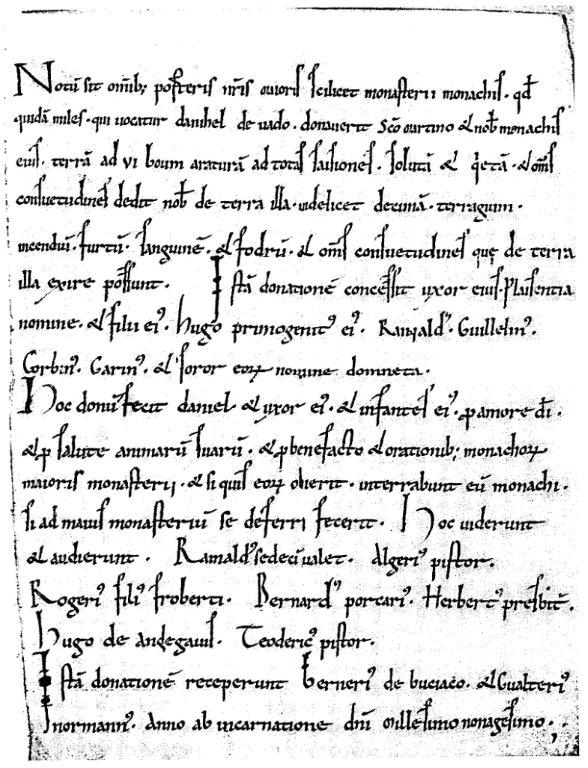 Notũ sit omĩb; posteris nr̃is maioris scilicet monasterii monachis. qd̃
quidã miles. qui uocatur danihel de uado. donauerit Sc̃o martino & nob̃ monachis
eius. terrã ad vi boum araturã ad totas saisiones. solutã & q̃etã. & om̃s
consuetudines dedit nob̃ de terra illa. uidelicet decimã. terragium.
incendiũ. furtũ. sanguinẽ. & fodrũ. & om̃s consuetudines quę de terra
illa exire possunt. Istã donationẽ concessit uxor eius. Plaisentia
nomine. & filii ei᾽. hugo primogenit᾽ ei᾽. Rainald᾽. Guillelm᾽.
Corbin᾽. Garin᾽. & soror eoꝝ nomine domneta.
Hoc donũ fecit daniel & uxor ei᾽. & infantes ei᾽. ꝓ amore dĩ.
& ꝓ salute animarũ suarũ. & ꝓ benefacto & orationib; monachoꝝ
maioris monasterii. & si quis eoꝝ obierit. interrabunt eũ monachi.
si ad maius monasteriũ se deferri fecerit. Hoc uiderunt
& audierunt. Rainald᾽ sedeciualet. Algeri᾽ pistor.
Rogeri᾽ fili᾽ froberti. Bernard᾽ porcari᾽. Herbert᾽ presbit̃.
Hugo de andegauis. Teoderic᾽ pistor.
Istã donationẽ receperunt berneri᾽ de buciaco. & Gualteri᾽
normann᾽. Anno ab incarnatione dñi millesimo nonagesimo.